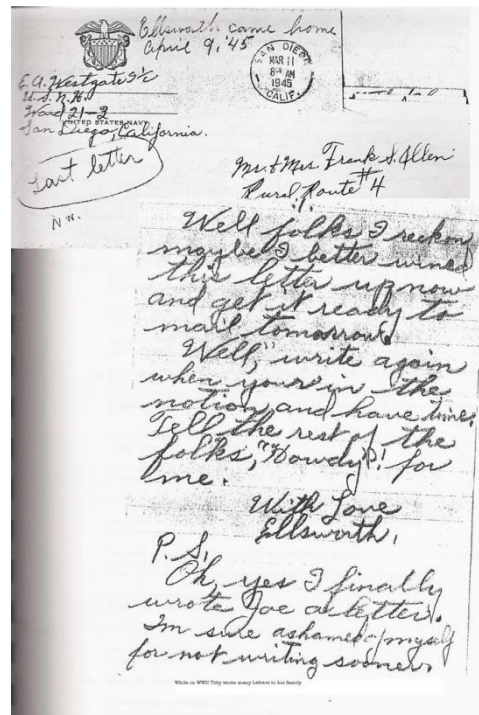 Ellsworth came home
April 9, '45
E. A. Westgate S/c
U.S.N.H.
Ward 21-2
UNITED STATES NAVY
San Diego, California.
SAN DIEGO
MAR 11
8 AM
1945
CALIF.
Last letter
Mr. & Mrs. Frank S. Allen
Rural Route #4
Well folks I reckon
maybe I better wind
this letter up now
and get it ready to
mail tomorrow.
Well, write again
when your in the
notion and have time.
Tell the rest of the
folks, "Howdy"! for
me.
With Love
Ellsworth,
P.S.
Oh, yes I finally
wrote Joe a letter.
I'm sure ashamed of myself
for not writing sooner.
While in WWII Toby wrote many Letters to his family